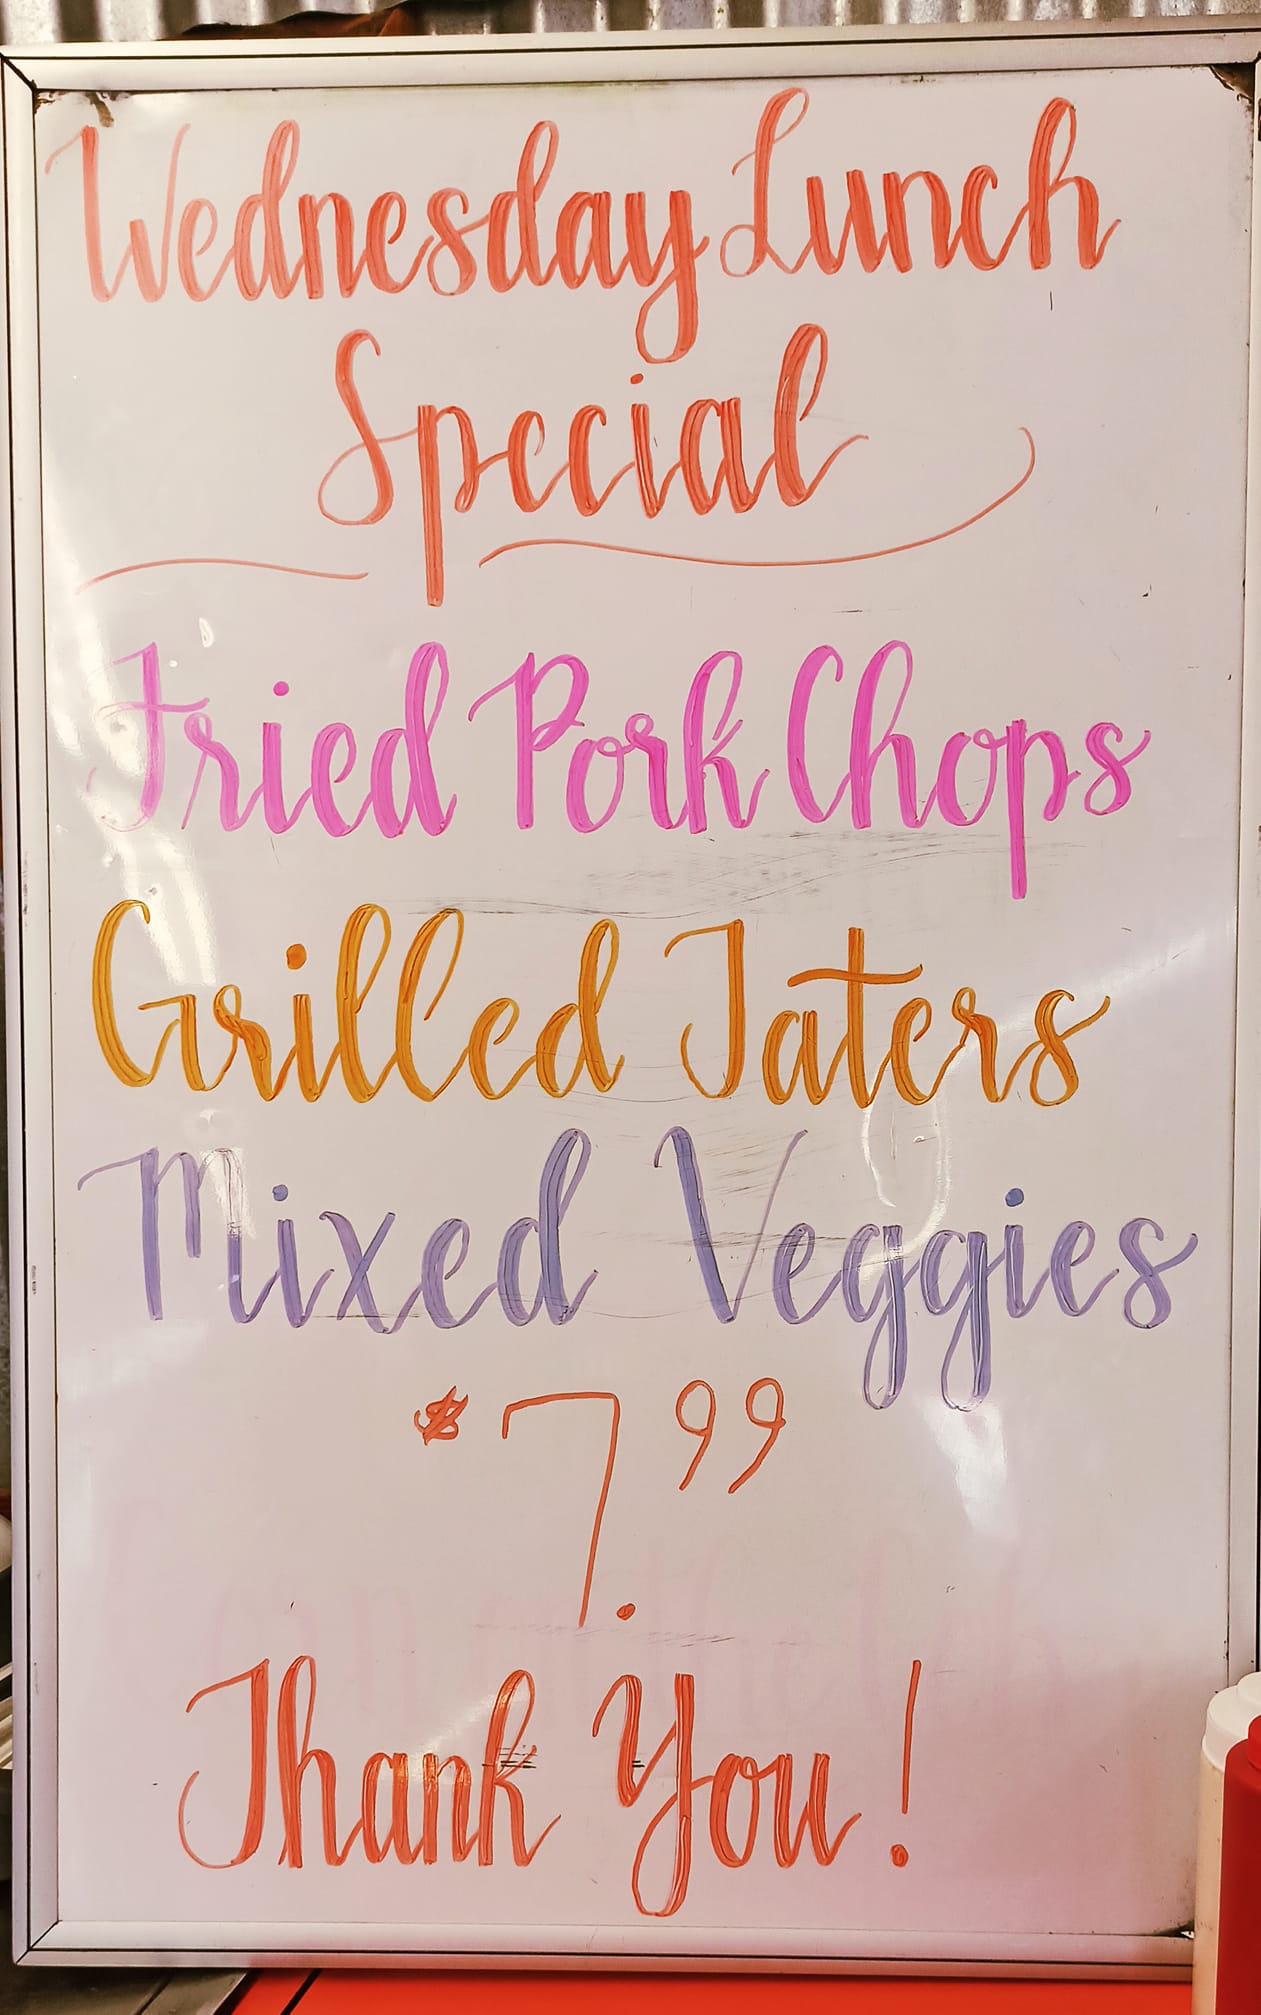 Wednesday Lunch
Special
Fried Pork Chops
Grilled Taters
Mixed Veggies
$7.99
Thank You!